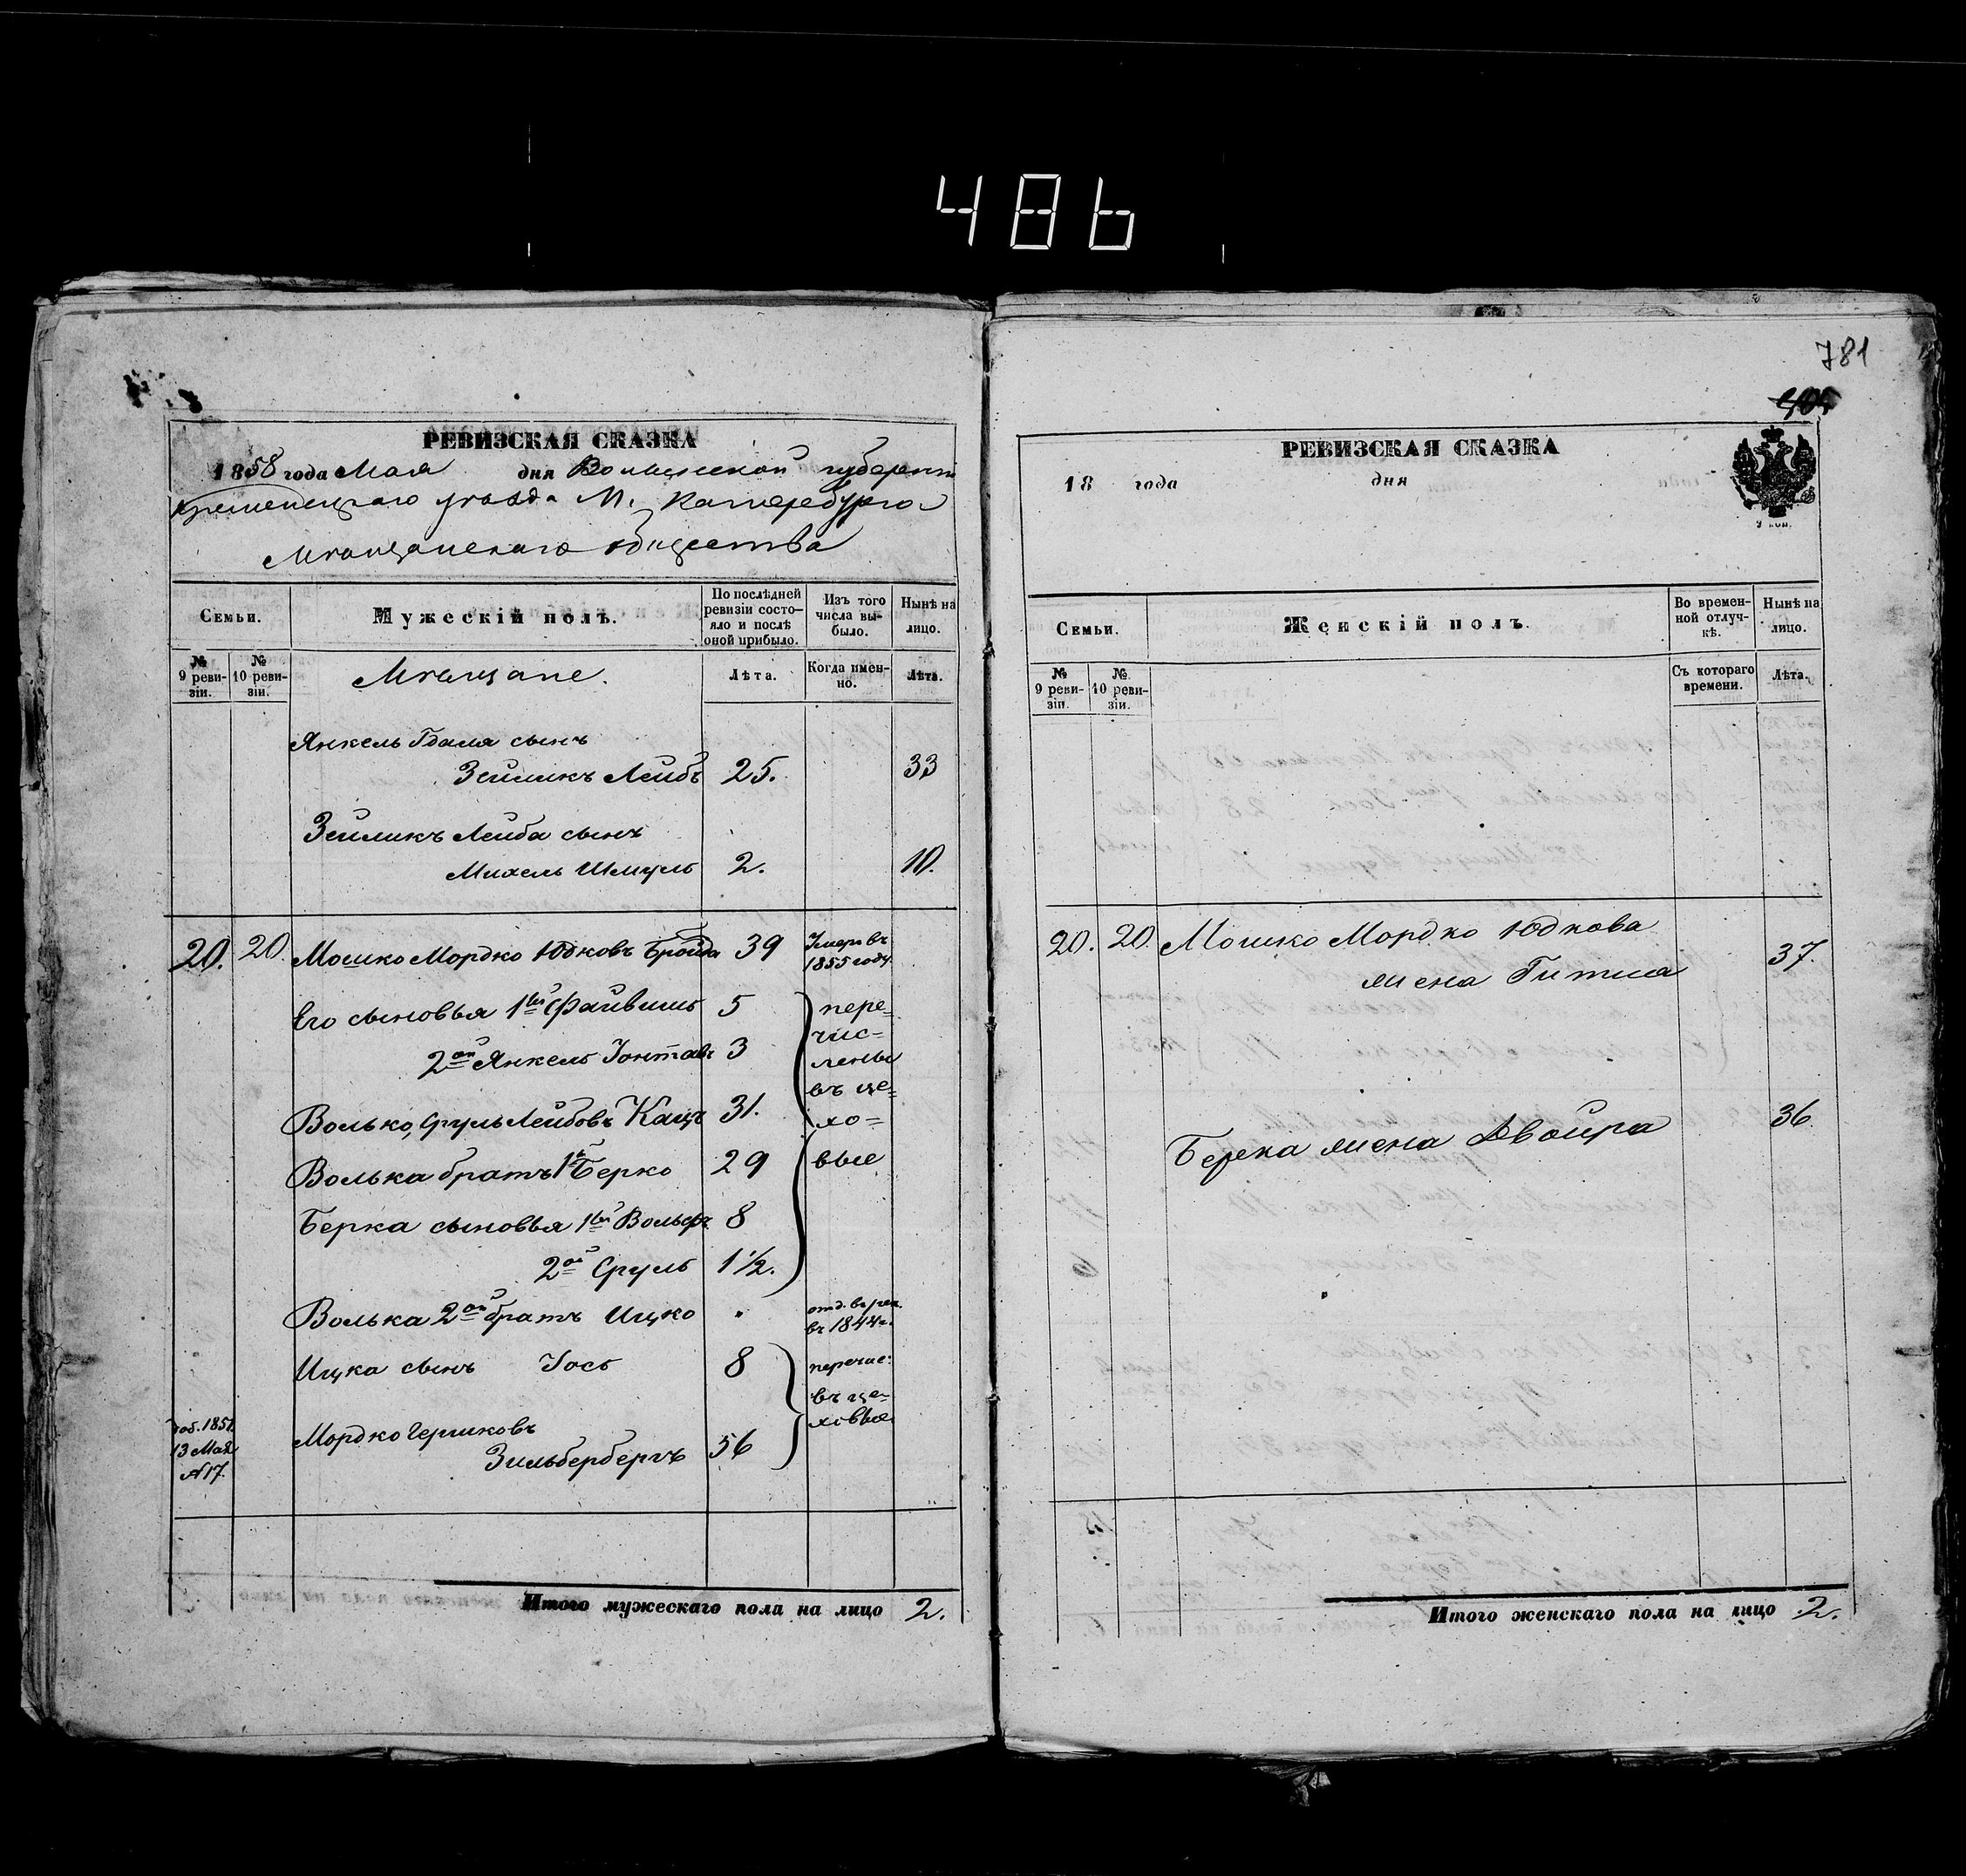 486
781
РЕВИЗСКАЯ СКАЗКА
1858 года Мая дня Волынской губерніи
Кременецкаго уѣзда М. Катербурга
Мѣщанскаго общества
Семьи.
Мужескій полъ.
По послѣдней ревизіи состо-
яло и послѣ
оной прибыло.
Изъ того
числа вы-
было.
Нынѣ на
лицо.
№
9 реви-
зіи.
№
10 реви-
зіи.
Мѣщане.
Лѣта.
Когда имен-
но.
Лѣта.
Янкель Гдаля сынъ
Зейликъ Лейбъ 25. 33
Зейликъ Лейба сынъ
Михель Шмуль 2. 10.
20. 20. Мошко Мордко Юдковъ Бройда 39 Умеръ въ
1855 году.
Его сыновья 1й Файвишъ 5 пере-
чис-
2ой Янкель Іонтавъ 3 лены
въ це-
Волько Сруль Лейбовъ Кацъ 31. хо-
Волька братъ 1й Берко 29 вые
Берка сыновья 1й Вольфъ 8
2ой Сруль 1½.
Волька 2ой братъ Ицко " отд. въ рек.
въ 1844г.
Ицка сынъ Іось 8 перечис:
въ це-
ховые
1857
13 Мая
№17.
Мордко Гершковъ
Зильбербергъ 56
Итого мужескаго пола на лицо 2.
РЕВИЗСКАЯ СКАЗКА
18 года дня
Семьи.
Женскій полъ.
Во времен-
ной отлуч-
кѣ.
Нынѣ на
лицо.
№
9 реви-
зіи.
№
10 реви-
зіи.
Съ котораго
времени.
Лѣта.
20. 20. Мошко Мордко Юдкова
жена Гитля 37.
Берека жена Двойра 36.
Итого женскаго пола на лицо 2.